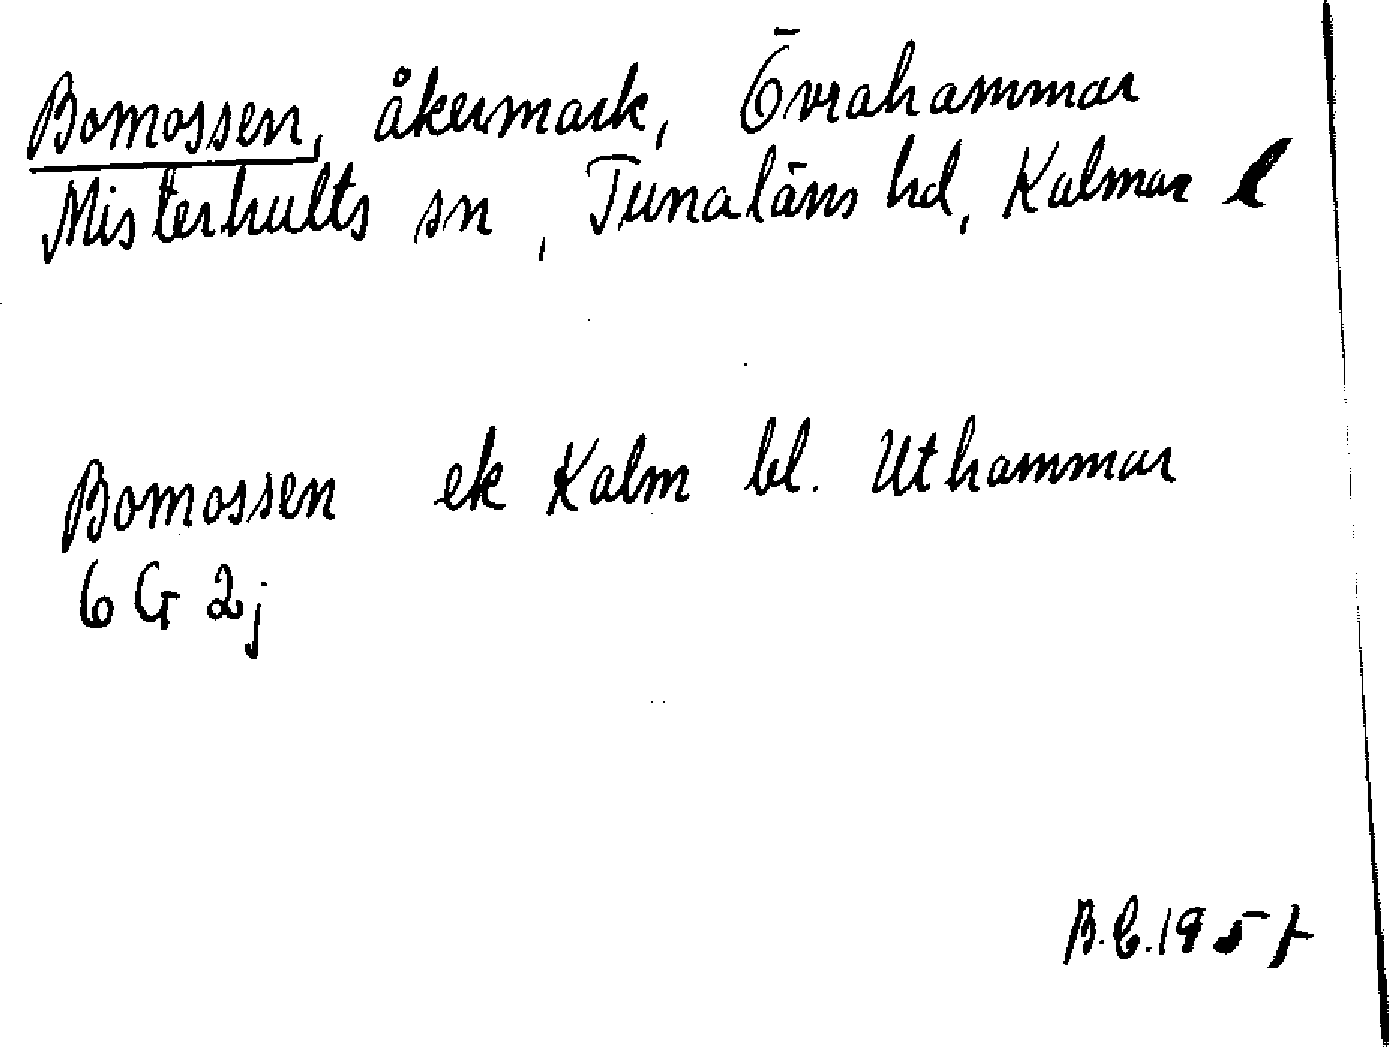 Bomossen, åkermark, Övrahammar
Misterhults sn, Tunaläns hd, Kalmar l
Bomossen ek Kalm bl. Uthammar
6 G 2j
B.C. 1957